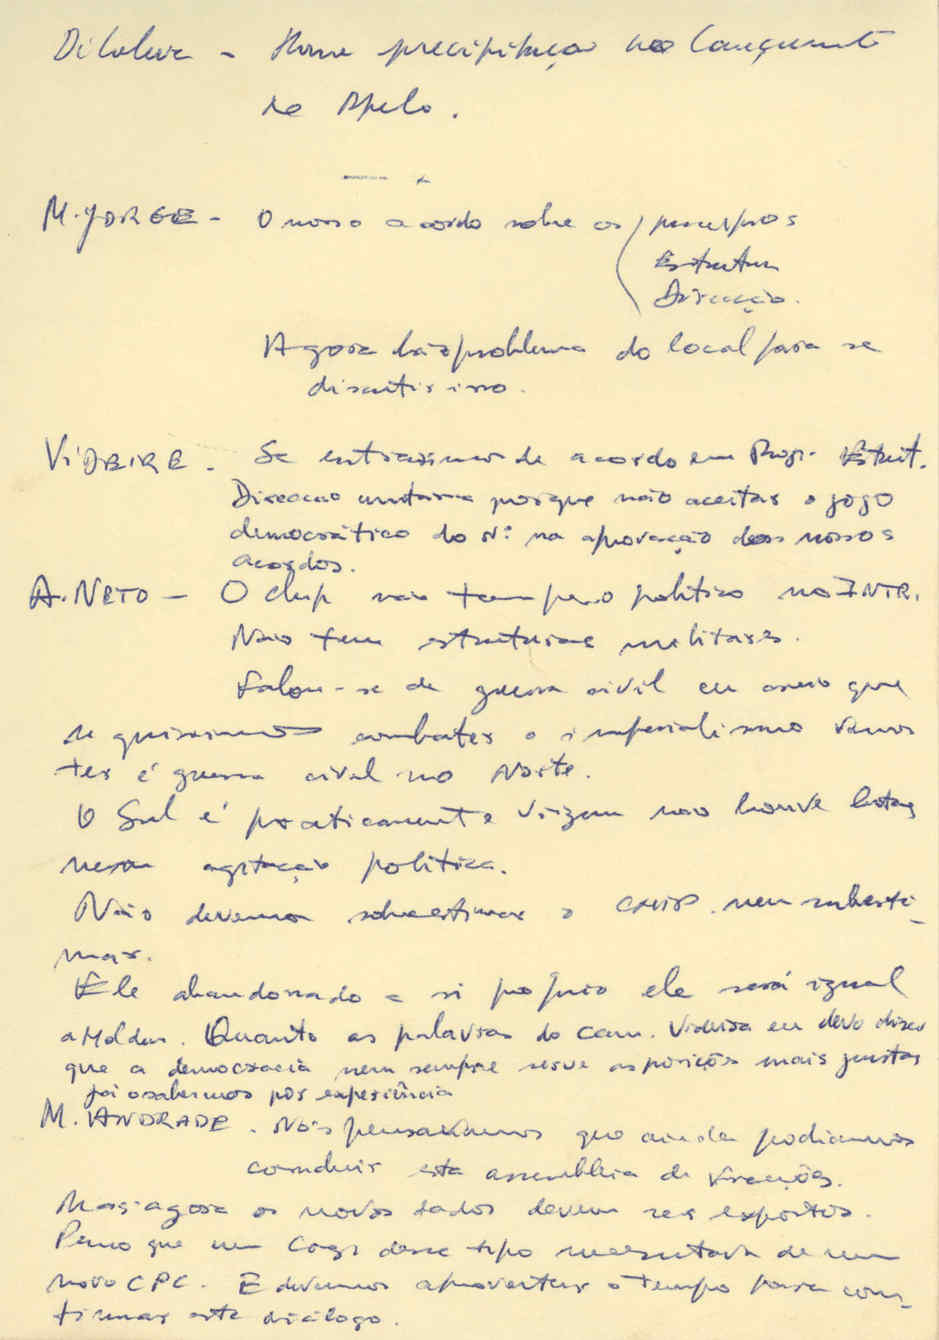 Dilolwa - Houve precipitação no lançamento
de Apelo.
M. JORGE - O nosso acordo sobre os princípios
Estrutura
Direcção.
Agora há o problema do local para se
discutir isso.
VIDEIRA - Se entrássemos de acordo em Progr. Estrut.
Direcção unitária porque não aceitar o jogo
democrático do Nº na aprovação dos nossos
acordos.
A. NETO - O não tem peso político no INTR.
Não tem estruturas militares.
Falou-se de guerra civil eu creio que
se quisermos combater o imperialismo vamos
ter é guerra civil no Norte.
O Sul é praticamente virgem não houve lutas
nem agitação política.
Não devemos sobrestimar o nem subesti-
mar.
Ele abandonado a si próprio ele será igual
a Holden. Quanto as palavras do cam. Videira eu devo dizer
que a democracia nem sempre serve as posições mais justas
já o sabemos por experiência
M. ANDRADE. Nós pensávamos que ainda podíamos
conduzir esta assembleia de fracções.
Mas agora os novos dados devem ser expostos.
Penso que um Cong. desse tipo necessitava de um
novo CPC. E devemos aproveitar o tempo para con-
firmar este diálogo.